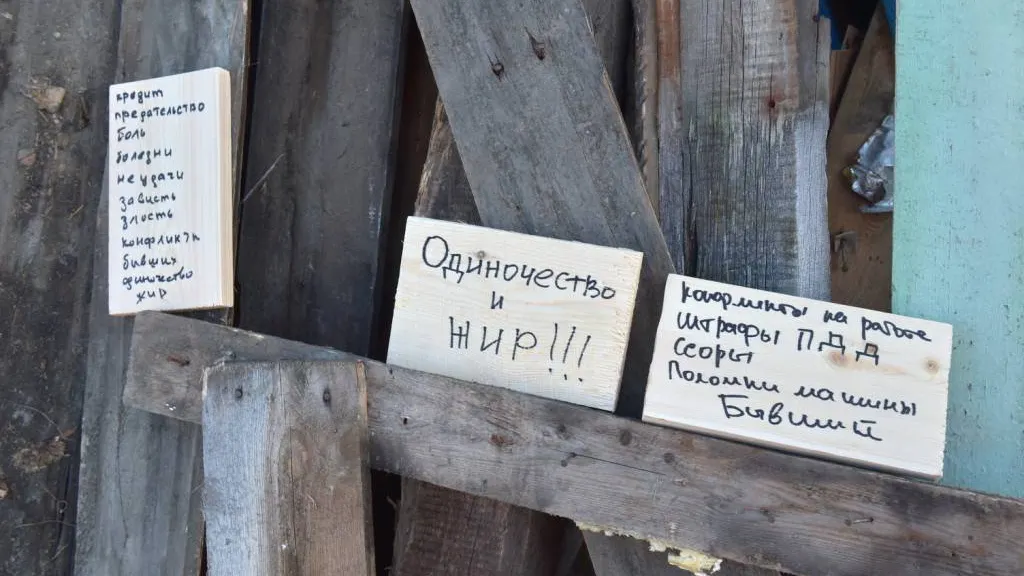 кредит
предательство
боль
болезни
неудачи
зависть
злость
конфликты
бывших
одиночество
жир
Одиночество
и
жир!!!
на работе
Штрафы ПДД
Ссоры
Поломки машины
Бывший